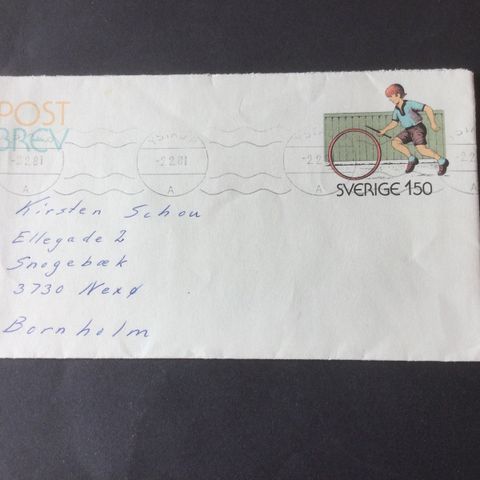 POST
BREV
-2.2.81
A
-2.2.81
A
SVERIGE 1.50
Kirsten Schou
Ellegade 2
Snogebæk
3730 Nexø
Bornholm